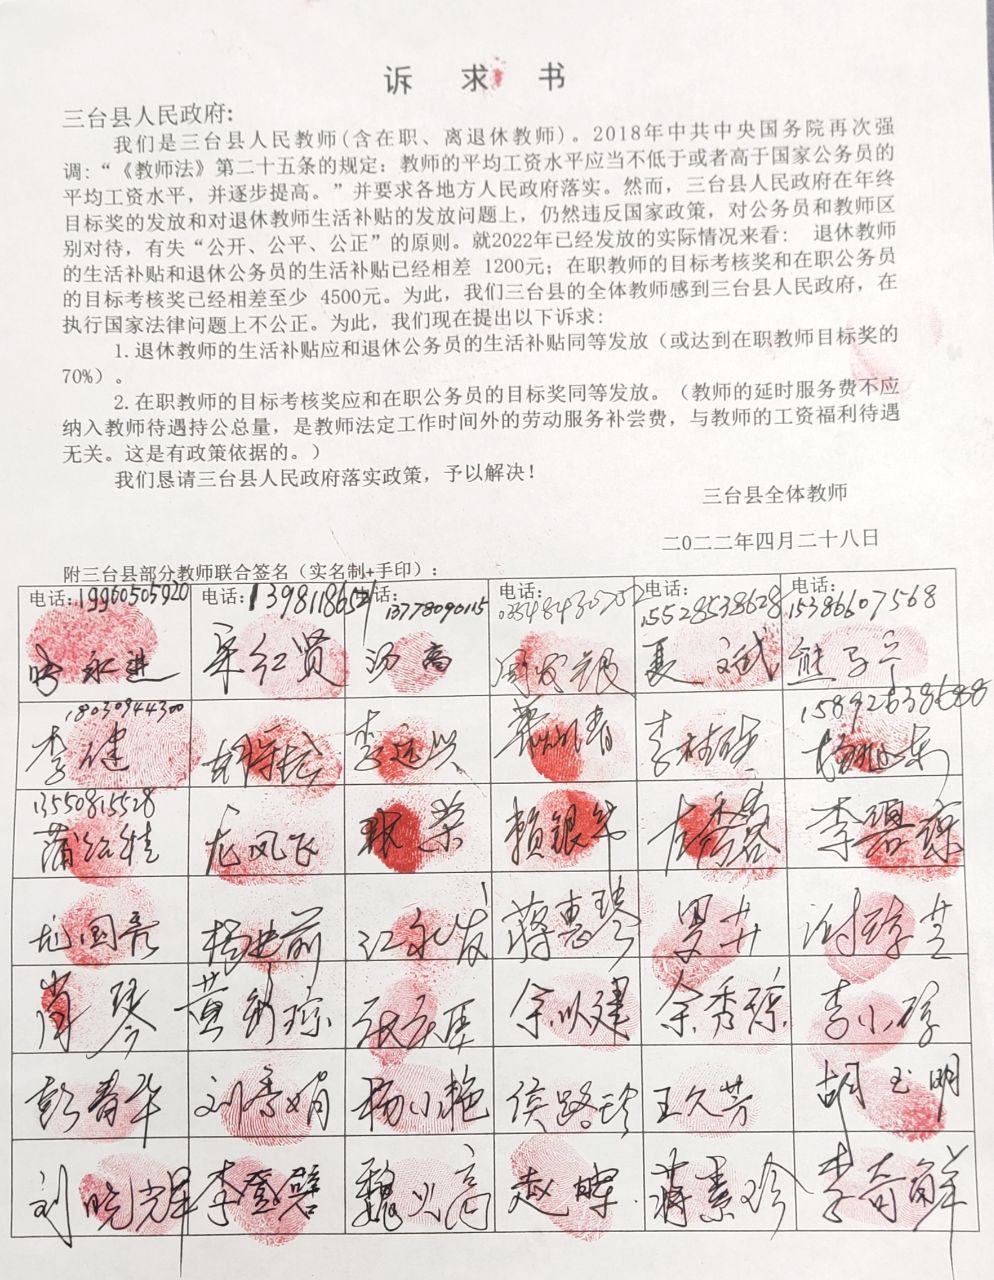 诉 求 书
三台县人民政府:
我们是三台县人民教师(含在职、离退休教师)。2018年中共中央国务院再次强
调:“《教师法》第二十五条的规定: 教师的平均工资水平应当不低于或者高于国家公务员的
平均工资水平, 并逐步提高。”并要求各地方人民政府落实。然而, 三台县人民政府在年终
目标奖的发放和对退休教师生活补贴的发放问题上, 仍然违反国家政策, 对公务员和教师区
别对待, 有失“公开、公平、公正”的原则。就2022年已经发放的实际情况来看: 退休教师
的生活补贴和退休公务员的生活补贴已经相差 1200元; 在职教师的目标考核奖和在职公务员
的目标考核奖已经相差至少 4500元。为此, 我们三台县的全体教师感到三台县人民政府, 在
执行国家法律问题上不公正。为此, 我们现在提出以下诉求:
1. 退休教师的生活补贴应和退休公务员的生活补贴同等发放 (或达到在职教师目标奖的
70%) 。
2. 在职教师的目标考核奖应和在职公务员的目标奖同等发放。(教师的延时服务费不应
纳入教师待遇持公总量, 是教师法定工作时间外的劳动服务补尝费, 与教师的工资福利待遇
无关。这是有政策依据的。)
我们恳请三台县人民政府落实政策, 予以解决!
三台县全体教师
二〇二二年四月二十八日
附三台县部分教师联合签名 (实名制+手印) :
电话:19960505920 电话:13981186521 电话:13778090115 电话: 电话:15528538628 电话:15386607568
永进 宋红贤 汤高 夏文武 熊子宁
18030944300 15892638688
李健 李远兴 李林雄
13550815528
蒲红桂 龙凤飞 张荣 赖银华 李碧琼
龙国亮 杨建前 江永发 蒋惠琴 谢琼芝
肖琴 黄钊琼 余以建 余秀琼 李小琼
彭春华 刘香娟 杨小艳 侯路珍 王久芳 胡玉明
刘晓辉 李登碧 魏兴高 赵晖 蒋素珍 李奇鲜